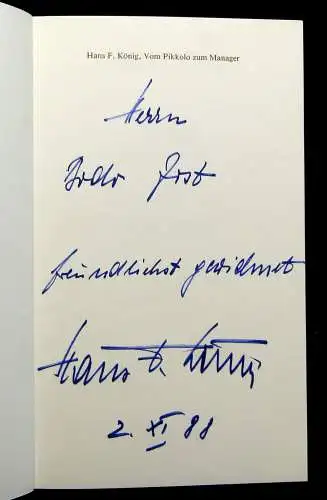 Hans F. König, Vom Pikkolo zum Manager
Herrn
Bodo Jost
freundlichst gewidmet
Hans F. König
2. XI 88